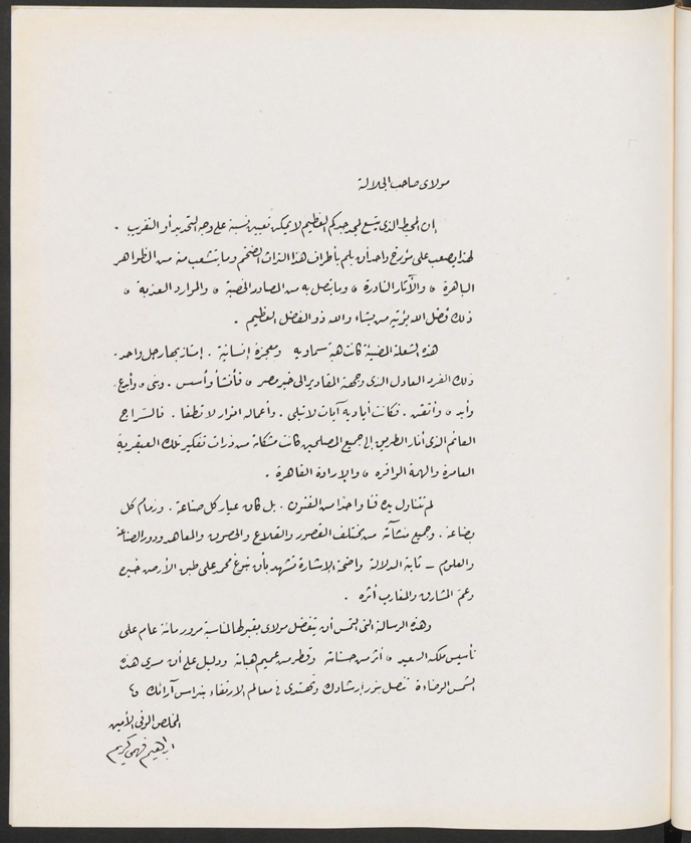 مولاى صاحب الجلالة
إن المحيط الذى يتسع لمجد جدكم العظيم لا يمكن تعيين نسبة على وجه التحديد أو التقريب .
لهذا يصعب على مؤرخ واحد أن يلم بأطراف هذا التراث الضخم وما يتشعب منه من الظواهر
الباهرة ، والآثار النادرة ، وما يتصل به من المصادر الخصبة ، والموارد العذبة ،
ذلك فضل الله يؤتيه من يشاء والله ذو الفضل العظيم .
هذه الشعلة المضيئة كانت هبة سماوية ومعجزة إنسانية . إمتاز بها رجل واحد .
ذلك الفرد العادل الذى وجهته المقادير إلى خير مصر ، فأنشأ وأسس . وبنى ، وأبدع .
وأيد ، وأتقن . فكانت أياديه آيات لا تبلى . وأعماله انوار لا تطفا . فالسراج
القائم الذى أنار الطريق إلى جميع المصلحين كانت مشكاته من ذرات تفكير تلك العبقرية
العامرة والهمة الوافرة ، والإرادة القاهرة .
لم تتناول يده فنا واحدا من الفنون . بل كان عيار كل صناعة . وزمام كل
بضاعة . وجميع منشآته من مختلف القصور والقلاع والحصون والمعاهد ودور الصناعة
والعلوم – ثابتة الدلالة واضحة الإشارة تشهد بأن نبوغ محمد على طبق الأرض خيره
وعم المشارق والمغارب أثره .
وهذه الرسالة التى ألتمس أن يتفضل مولاى بقبولها لمناسبة مرور مائة عام على
تأسيس ملكه السعيد ، أثر من حسناته وقطر من عميم هباته ودليل على أن سرى هذه
الشمس الوضاءة تتصل بنور إرشادك وتهتدى فى معالم الارتقاء بنبراس آرائك ،
المخلص الوفى الأمين
ابراهيم فهمى كريم